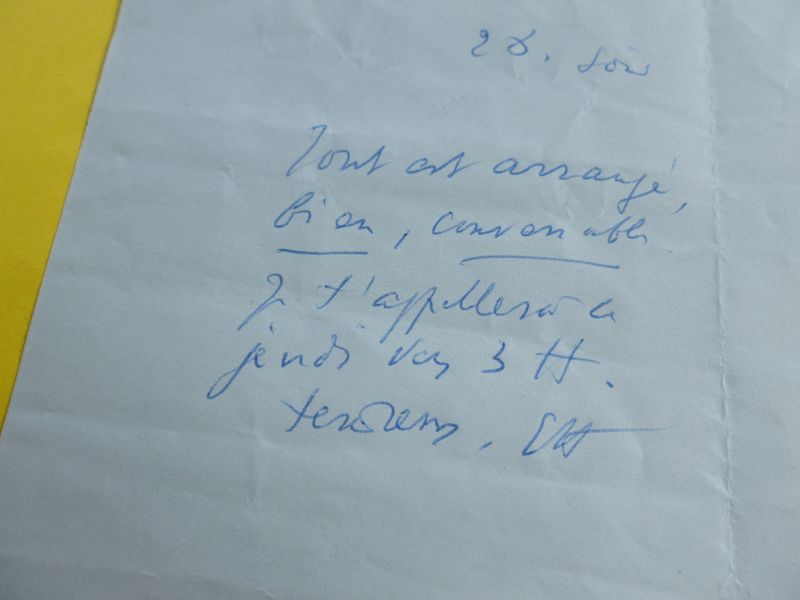 soir
Tout est arrangé,
bien, convenable
Je t'appellerai
jeudi vers 3 H.